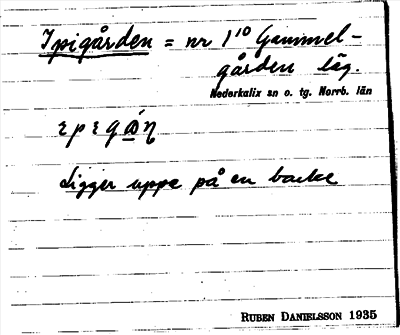 Ipigården = nr 1¹⁰ Gammel-
gården läg.
Nederkalix sn o. tg. Norrb. län
Ligger uppe på en backe
RUBEN DANIELSSON 1935